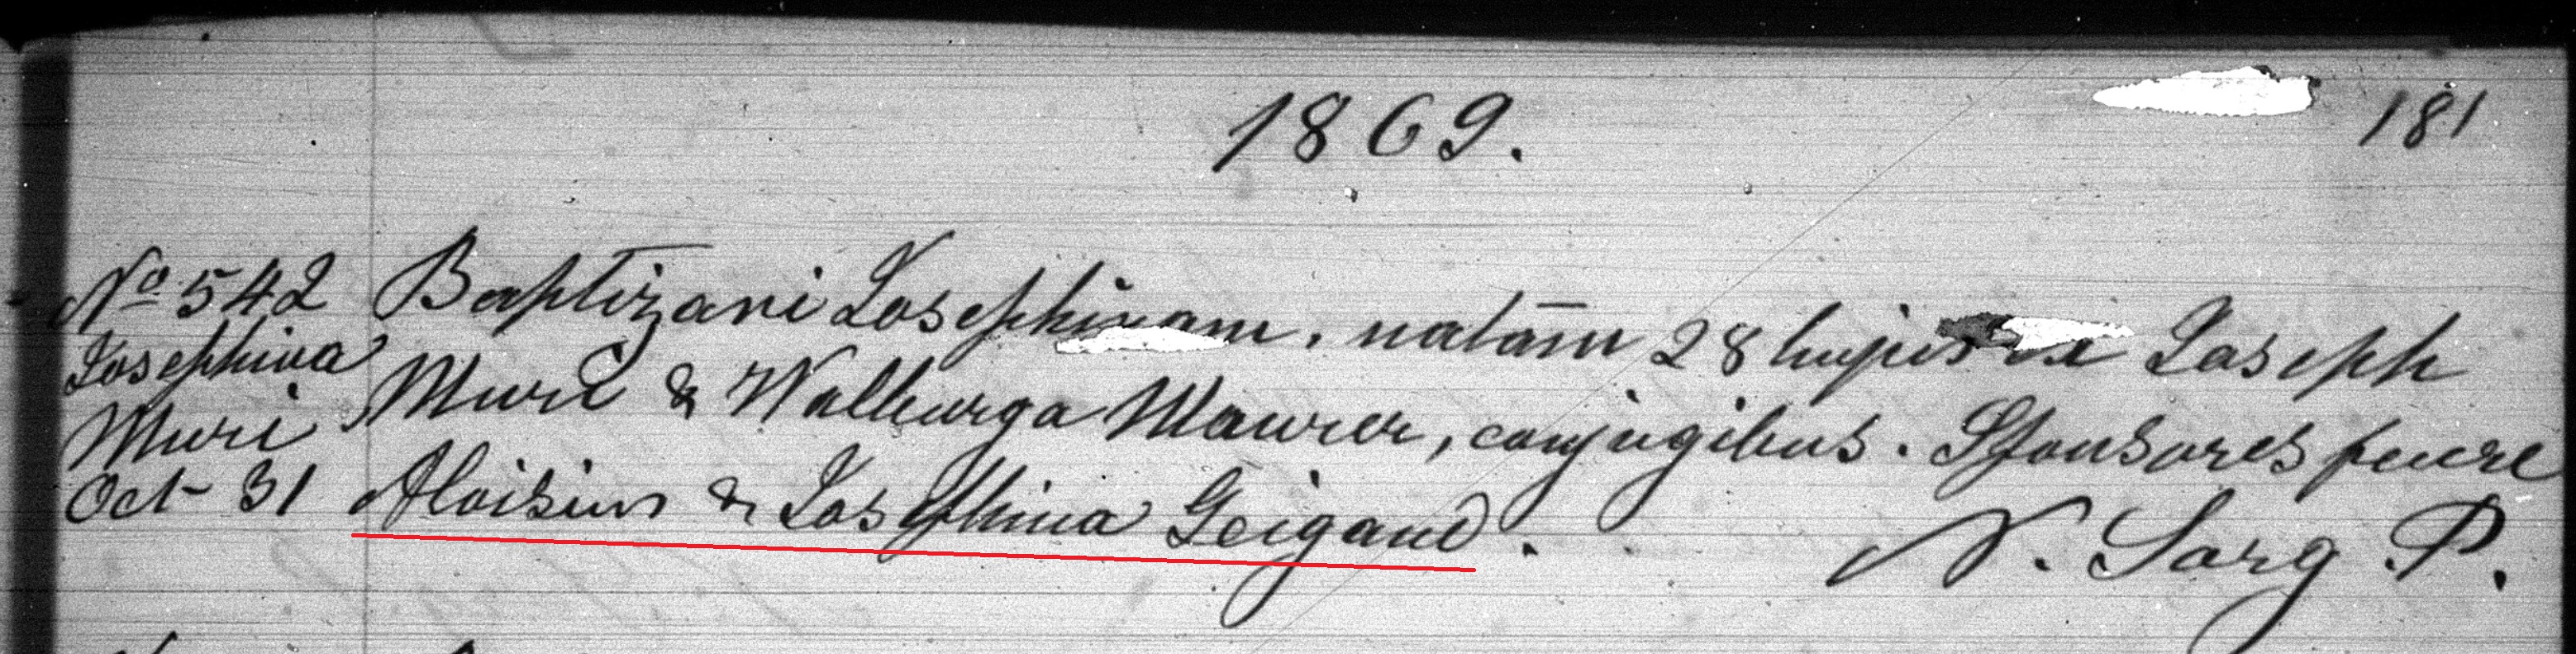 1869.
181
No 542
Josephina
Muri
Oct 31
Baptizavi Josephinam, natam 28 hujus ex Joseph
Muri & Walburga Maurer, conjugibus. Sponsores fuere
Aloisius & Josephina Geigand.
N. Sorg P.